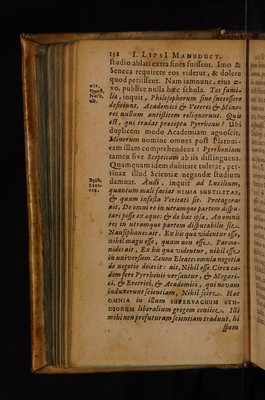 132 I. LIPSI MANUDUCT.
studio ablati extra fines fuissent. Imo &
Seneca requirere eos videtur, & dolere
quod petiissent. Nam iam nunc, eius æ-
vo, pusilæ nulla hæc schola. Tot fami-
liæ, inquit, Philosophorum sine successore
deficiunt. Academici & Veteres & Mino-
res nullum antistitem reliquerunt. Quis
est, qui tradat præcepta Pyrrhonis? Ubi
duplicem modo Academiam agnoscit,
Minorum nomine omnes post Platoni-
cam illam comprehendens: Pyrrhoniam
tamen sive Scepticam ab iis distinguens.
Quamquam idem dubitare tolerat, per-
tinax illud Scientiæ negandæ studium
damnat. Audi, inquit ad Lucilium,
quantum mali faciat NIMIA SUBTILITAS,
& quam infesta Veritati sit. Protagoras
ait, De omni re in utramque partem dispu-
tari posse ex æquo: & de hac ipsa, An omnis
res in utramque partem disputabilis sit.
Nausiphanes ait, Ex his quæ videntur esse,
nihil magis esse, quam non esse. Parme-
nides ait, Ex his quæ videntur, nihil esse
in universum. Zenon Eleates omnia negotia
de negotio deiecit: ait, Nihil esse. Circa ea-
dem fere Pyrrhonii versantur, & Megari-
ci, & Eretrici, & Academici, qui novam
induxerunt scientiam, Nihil scire. Hæc
OMNIA in illum SUPERVACUUM STU-
DIORUM liberalium gregem coniice. Illi
mihi non profuturam scientiam tradunt, hi
spem